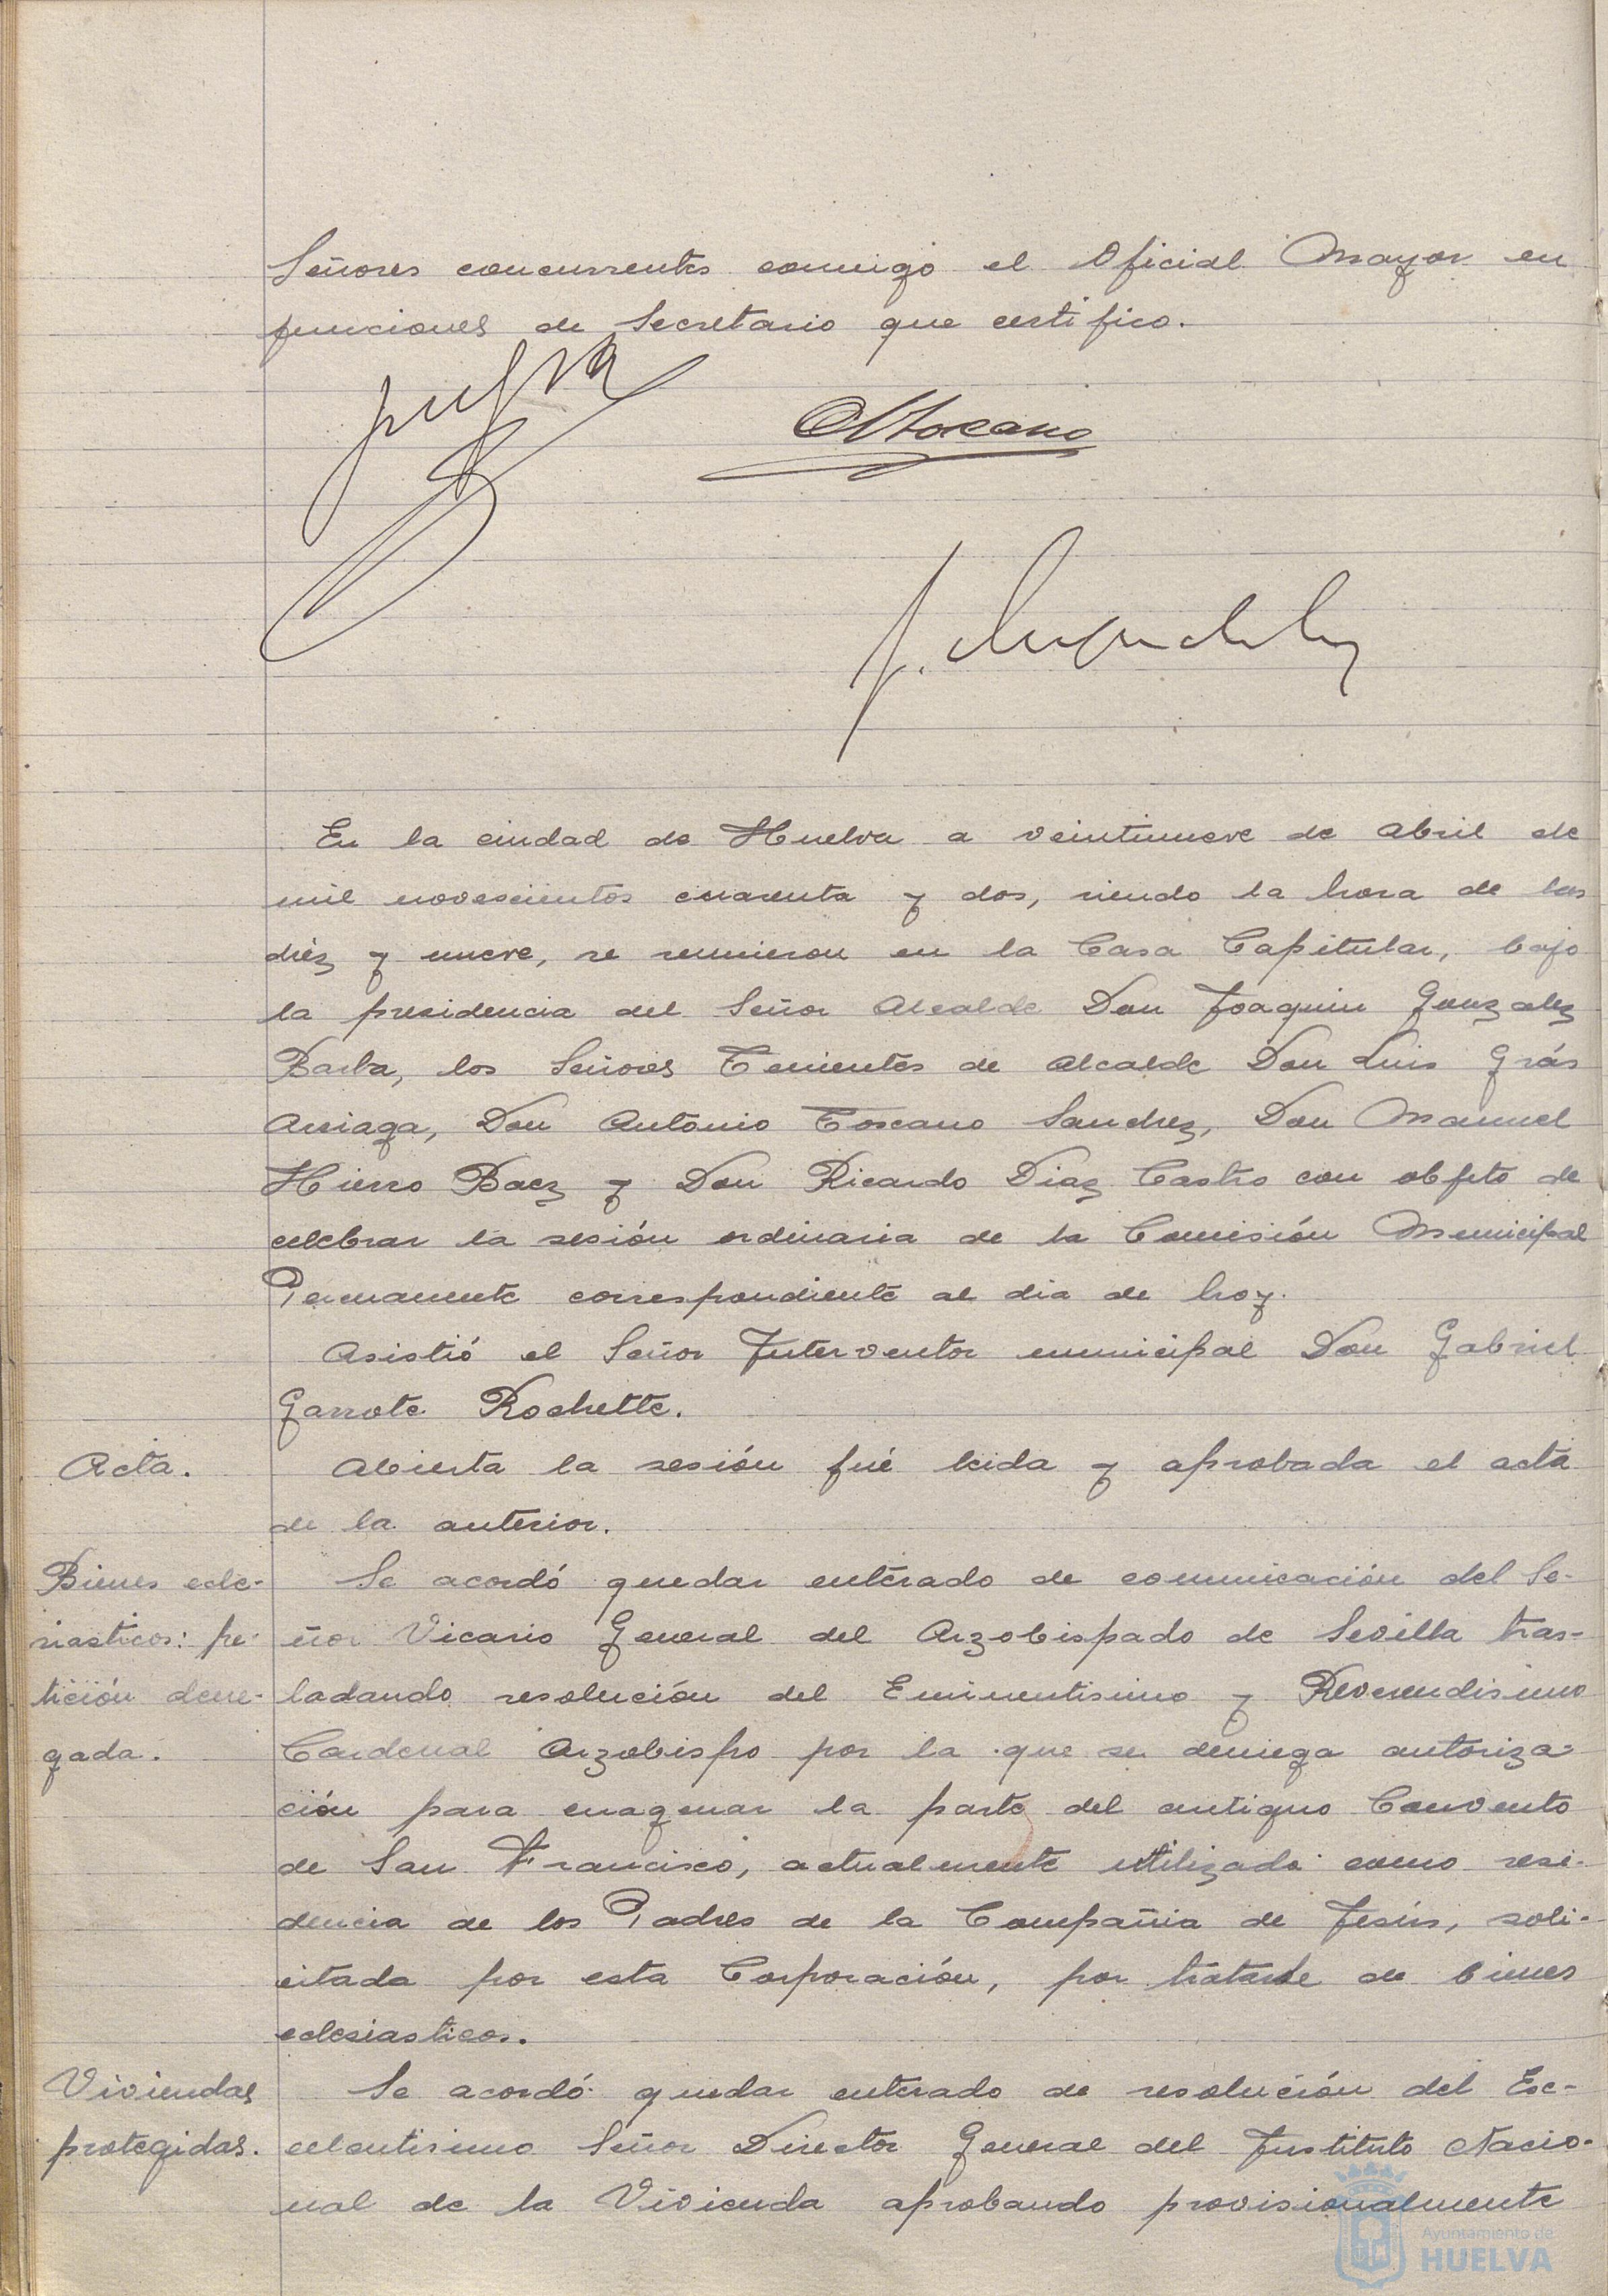 Señores concurrentes conmigo el Oficial Mayor en
funciones de Secretario que certifico.
En la ciudad de Huelva a veintinueve de Abril de
mil novescientos cuarenta y dos, siendo la hora de las
diéz y nueve, se reunieron en la Casa Capitular, bajo
la presidencia del Señor Alcalde Don Joaquin Gonzalez
Barba, los Señores Tenientes de Alcalde Don Luis Grás
Arriaga, Don Antonio Toscano Sanchez, Don Manuel
Hierro Baez y Don Ricardo Diaz Castro con objeto de
celebrar la sesión ordinaria de la Comisión Municipal
Permanente correspondiente al dia de hoy.
Asistió el Señor Interventor municipal Don Gabriel
Garrote Rochette.
Acta.
Abierta la sesión fué leida y aprobada el acta
de la anterior.
Bienes ecle-
siasticos: pe-
tición dene-
gada.
Se acordó quedar enterado de comunicación del Se-
ñor Vicario General del Arzobispado de Sevilla tras-
ladando resolución del Eminentisimo y Reverendisimo
Cardenal Arzobispo por la que se deniega autoriza-
ción para enagenar la parte del antiguo Convento
de San Francisco, actualmente utilizada como resi-
dencia de los Padres de la Compañia de Jesús, soli-
citada por esta Corporación, por tratarse de bienes
eclesiasticos.
Viviendas
protegidas.
Se acordó quedar enterado de resolución del Exc-
celentisimo Señor Director General del Instituto Nacio-
nal de la Vivienda aprobando provisionalmente
Ayuntamiento de
HUELVA